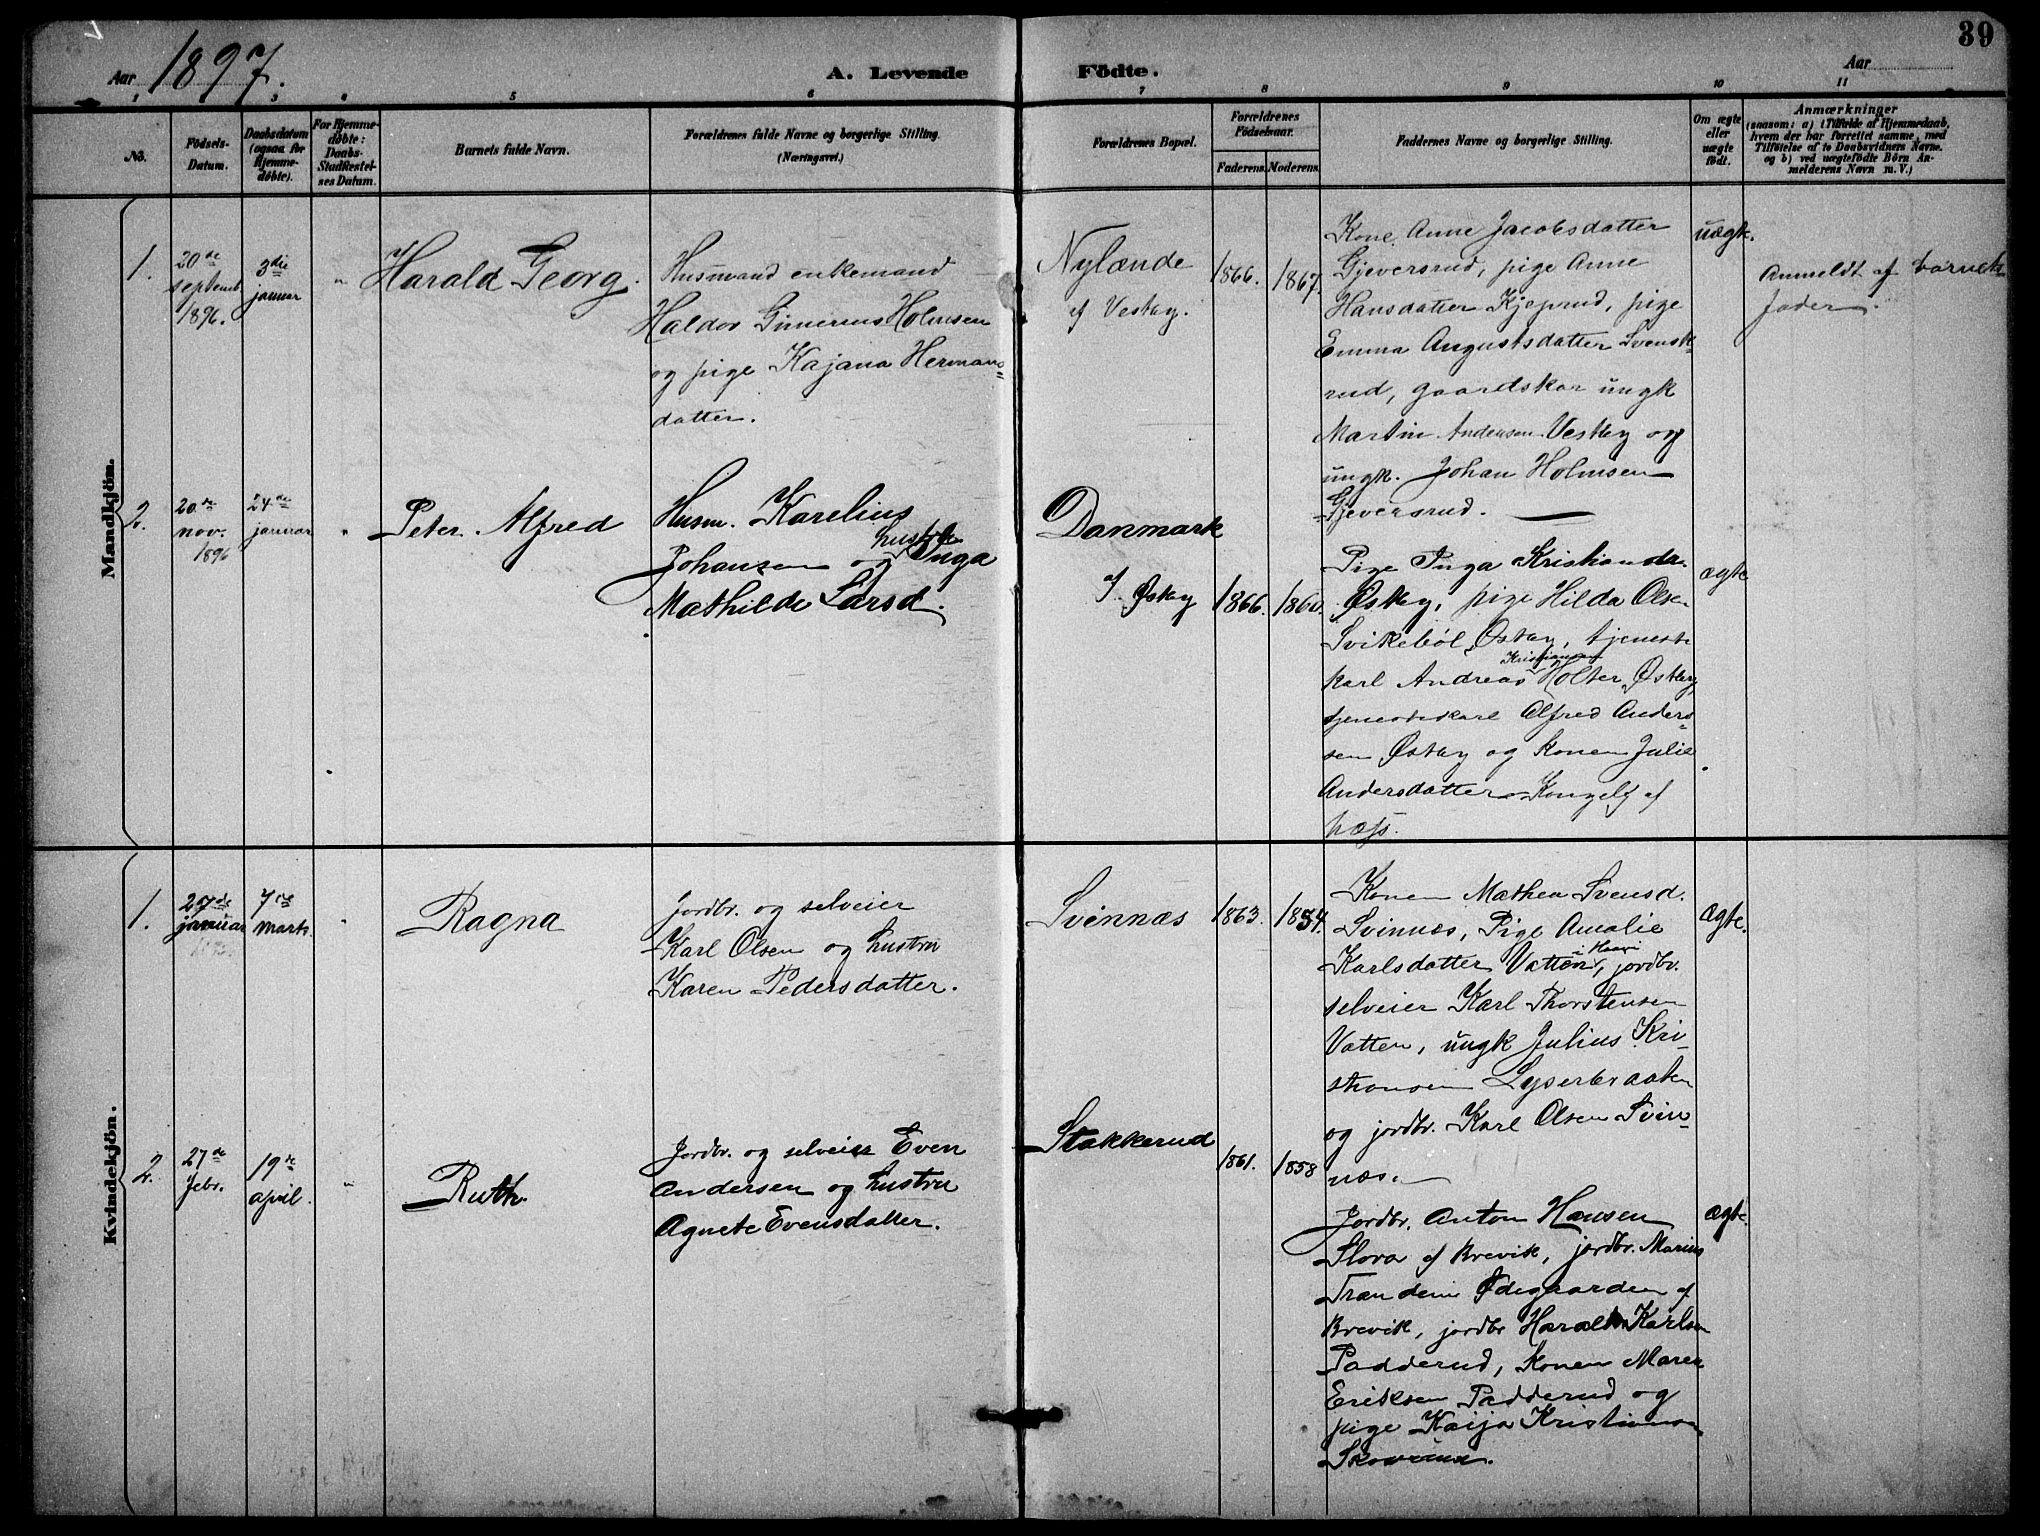 39
Aar 1897.
A. Levende Födte.
Aar
1 3 4 5 6 7 8 9 10 11
No.
Födsels-
Datum.
Daabsdatum
(ogsaa for
Hjemme-
døbte).
For Hjemme-
døbte:
Daabs-
Stadfæstel-
ses Datum.
Barnets fulde Navn.
Forældrenes fulde Navne og borgerlige Stilling.
(Næringsvei.)
Forældrenes Bopæl.
Forældrenes
Födselsaar.
Faderens. Moderens.
Faddernes Navne og borgerlige Stilling.
Om ægte
eller
uægte
födt.
Anmærkninger
(saasom: a) i Tilfælde af Hjemmedaab,
hvem der har forrettet samme, med
Tilføielse af to Daabsvidners Navne.
og b) ved uægtefödte Börn An-
melderens Navn m. V.)
Mandkjön.
1.
20de
septemb
1896.
3die
januar
"
Harald Georg.
Husmand enkemand
Haldor Holmsen
og pige Kajana Hermans=
datter.
Nylænde
af Vestby.
1866.
1867.
Kone Anne Jacobsdatter
Gjeversrud, pige Anne
Hansdatter Kjeprud, pige
Emma Augustsdatter Svensk-
rud, gaardskar ungk
Martin Andersen Vestby og
ungk. Johan Holmsen
Gjeversrud.
uægt.
Anmeldt af barnets
fader.
2.
20de
nov.
1896
24de
januar
"
Peter Alfred
Husm. Karelius
Johansen og hustru Inga
Mathilde Larsd.
Danmark
Østby
1866.
1860.
Pige Inga Kristiansdr.
Østby, pige Hilda Olsen
Svikebøl, Østby, tjeneste
karl Andreas Kristiansen Holter, Østby
tjenestekarl Alfred Anders=
sen Østby og Konen Julie
Andersdatter Kongelf af
ægte
Kvindekjön.
1.
januar
7de
marts.
"
Ragna
Jordbr. og selveier
Karl Olsen og hustru
Karen Pedersdatter.
Svinnæs
1863.
1854.
Konen Mathea Svensd.
Svinnæs, Pige Amalie
Karlsdatter Vatten, jordbr.
selveier Karl Thorstensen
Vatten, ungk Julius Kri-
stiansen Lyserbraaten
og jordbr. Karl Olsen Svin-
næs.
ægte.
2.
27de
febr.
19de
april.
"
Ruth.
Jordbr. og selveier Even
Andersen og hustru
Agnete Evensdatter.
Stokkerud
1861.
1858
Jordbr. Anton Hansen
Slora af Brevik, jordbr. Marius
Trandem Ødegaarden af
Brevik, jordbr Harald Karlsen
Padderud, Konen Maren
Eriksen Padderud og
pige Kaija Kristiansen
ægte.